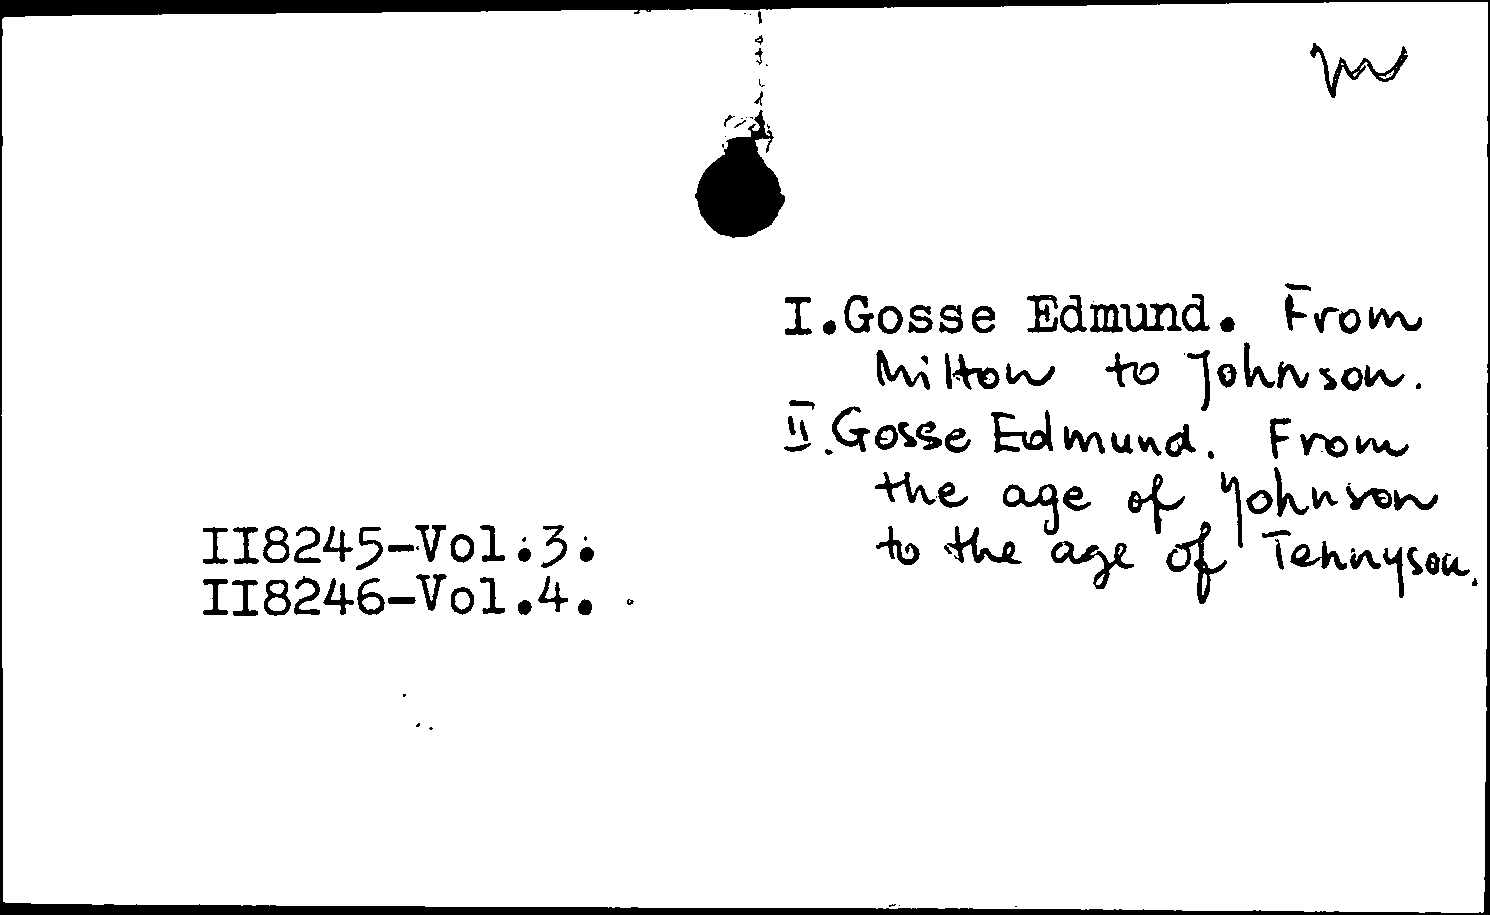 I.Gosse Edmund. From
Milton to Johnson.
II.Gosse Edmund. From
the age of Johnson
to the age of Tennyson.
II8245-Vol.3.
II8246-Vol.4.